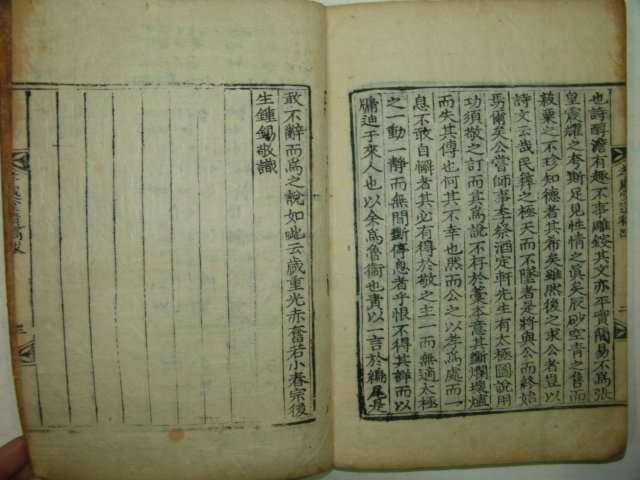 也詩醇澹有趣不事雕鍰其文亦平實簡易不爲張
皇震耀之夸斯足見性情之眞矣辰砂空靑之售而
菽粟之不珍知德者其希矣雖然後之求公者豈以
詩文云哉民彝之極天而不墜者是將與公而終始
焉爾矣公嘗師事李祭酒定軒先生有太極圖說用
功須敬之訂而其爲說不杼於藁本意其斷爛壞爐
而失其傳也何其不幸也然而公之以孝爲處而一
息不敢自懈者其必有得於敬之主一而無適太極
之一動一靜而無間斷停息者乎恨不得其詳而以
牖迪于來人也以余爲魯衛也責以一言於編尾是
敢不辭而爲之說如此云歲重光赤奮若小春宗後
生鍾錫敬識